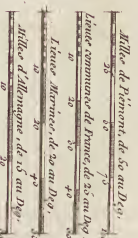 Milles de Piémont, de 50 au Deg.
25 75
Lieues communes de France, de 25 au Deg.
10 20 30 40
Lieues Marines, de 20 au Deg.
10 20 40
Milles d'Allemagne, de 15 au Deg.
10 20